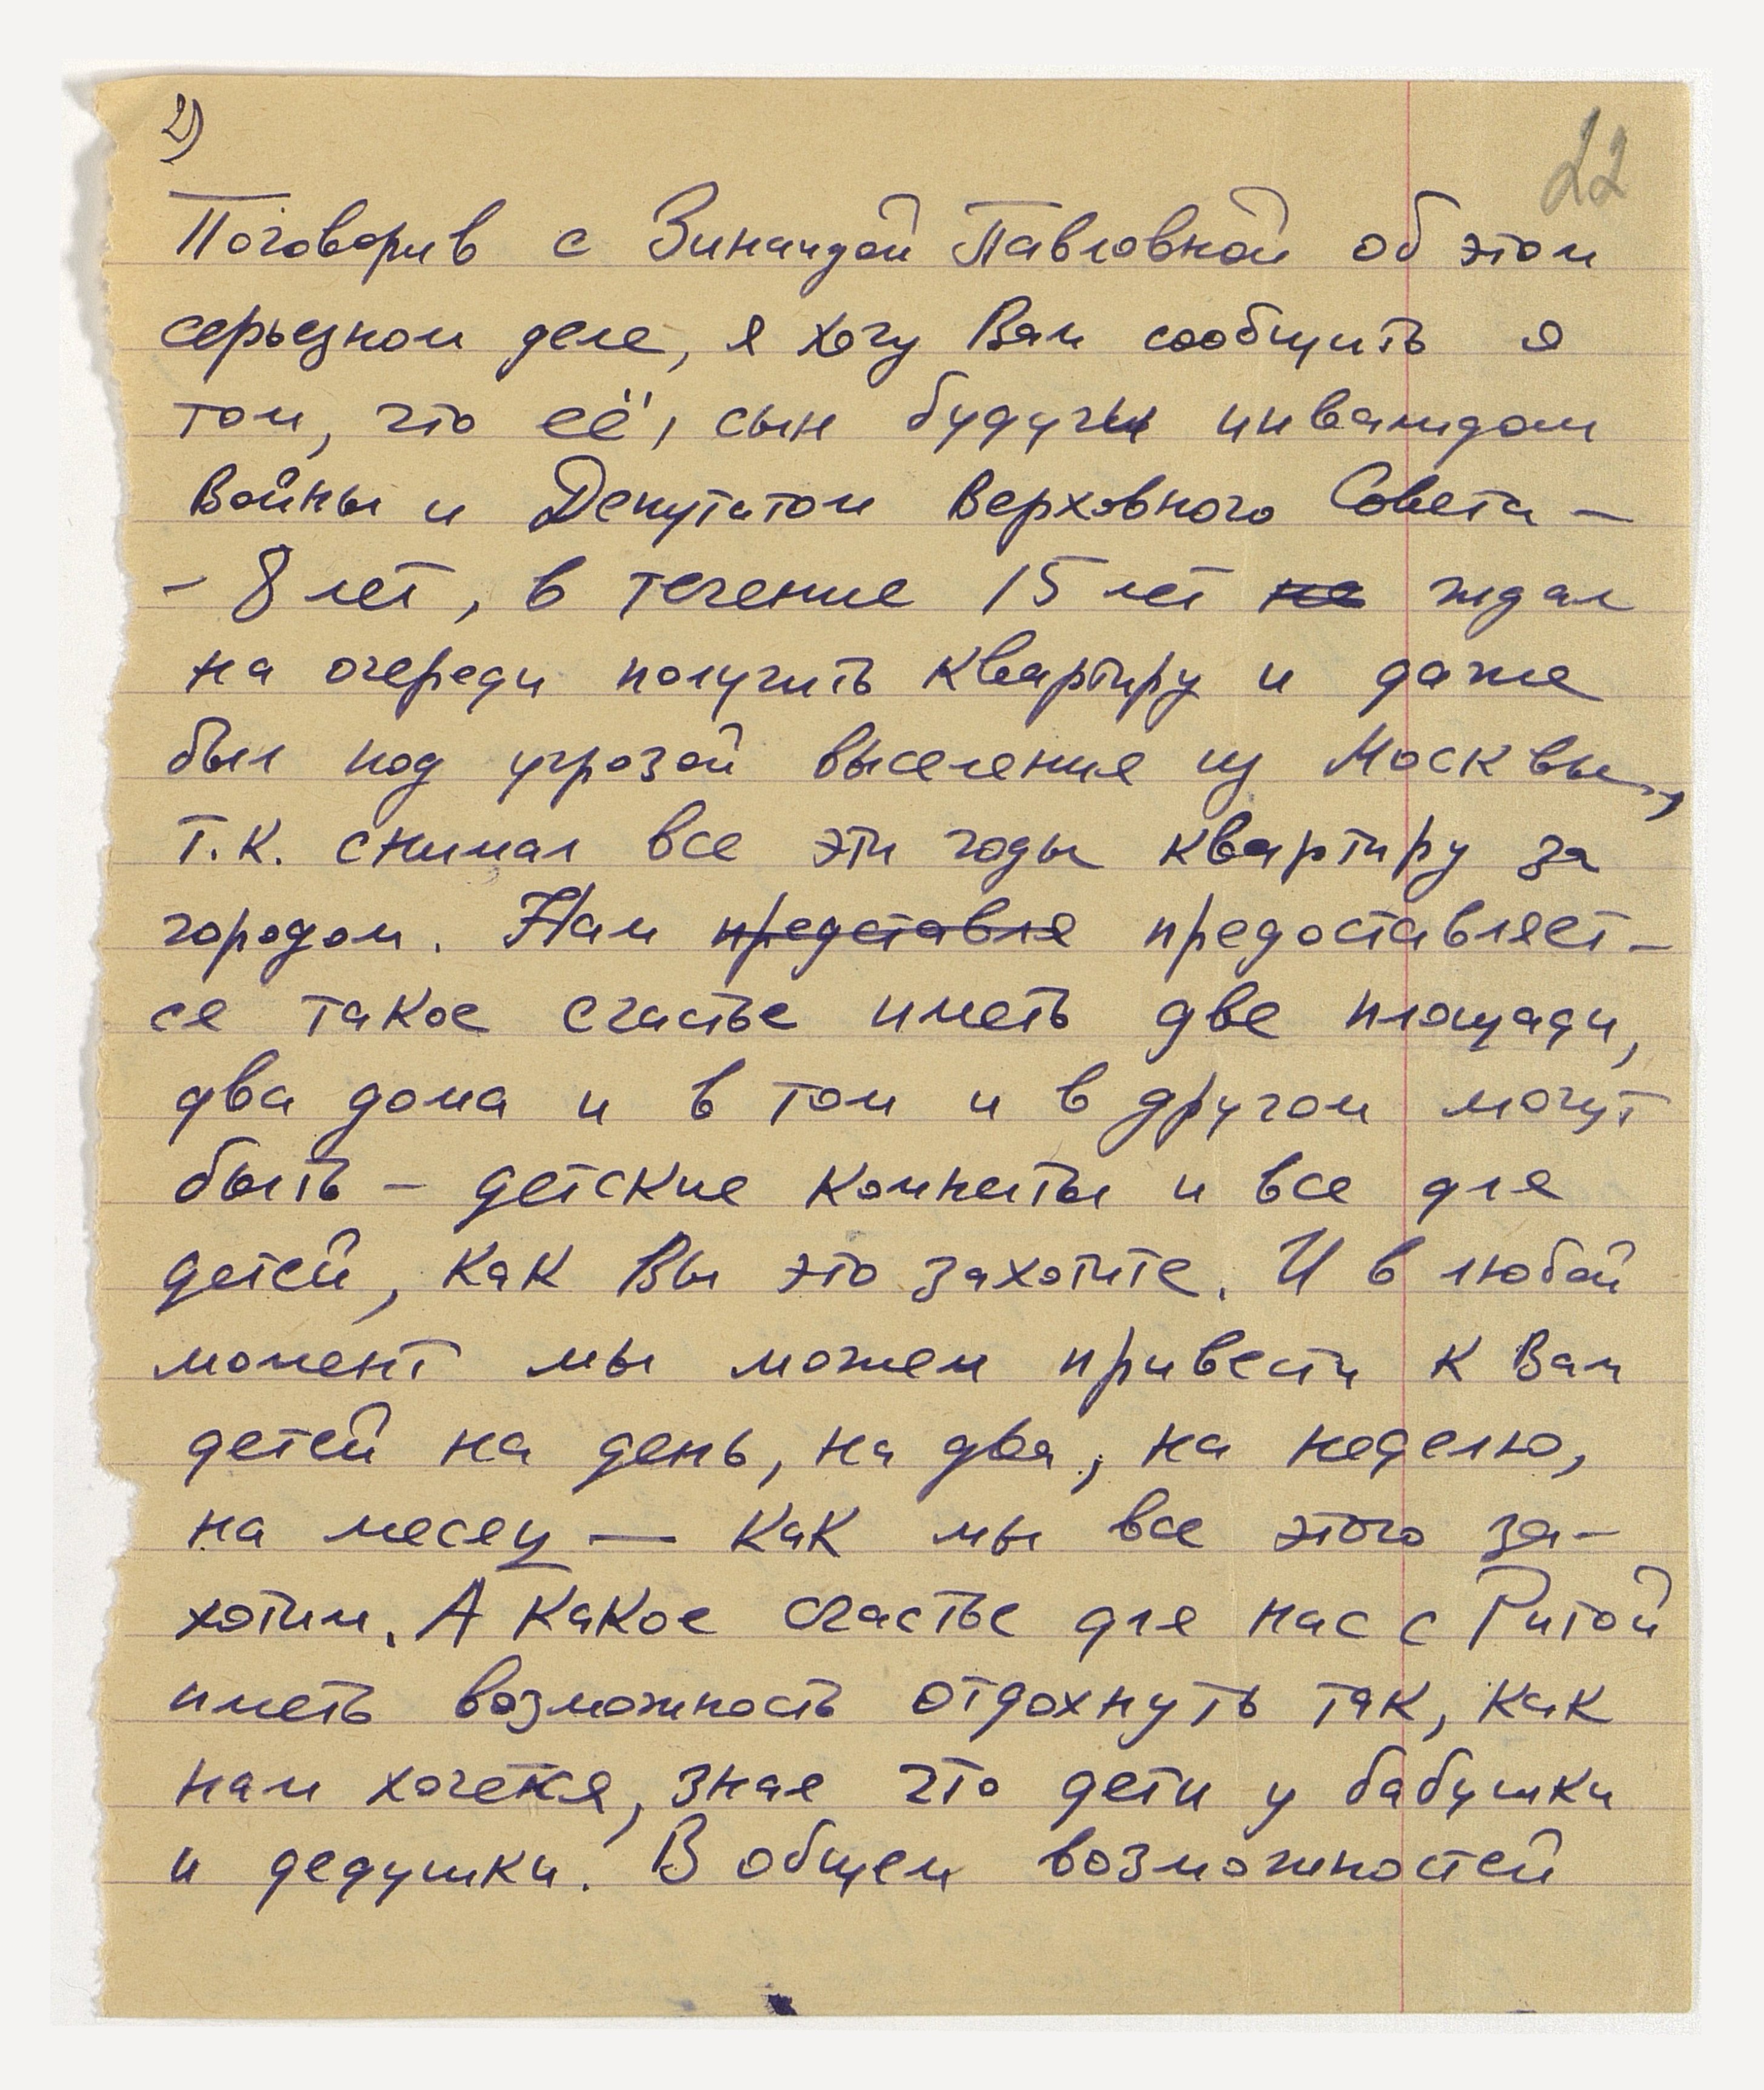 2)
22
Поговорив с Зинаидой Павловной об этом
серьезном деле, я хочу Вам сообщить о
том, что её, сын будучи инвалидом
Войны и Депутатом Верховного Совета –
– 8 лет, в течение 15 лет не ждал
на очереди получить квартиру и даже
был под угрозой выселения из Москвы,
т.к. снимал все эти годы квартиру за
городом. Нам представля предоставляет-
ся такое счастье иметь две площади,
два дома и в том и в другом могут
быть – детские комнаты и все для
детей, как Вы это захотите. И в любой
момент мы можем привести к Вам
детей на день, на два, на неделю,
на месяц — как мы все этого за-
хотим. А какое счастье для нас с Ритой
иметь возможность отдохнуть так, как
нам хочется, зная что дети у бабушки
и дедушки. В общем возможностей